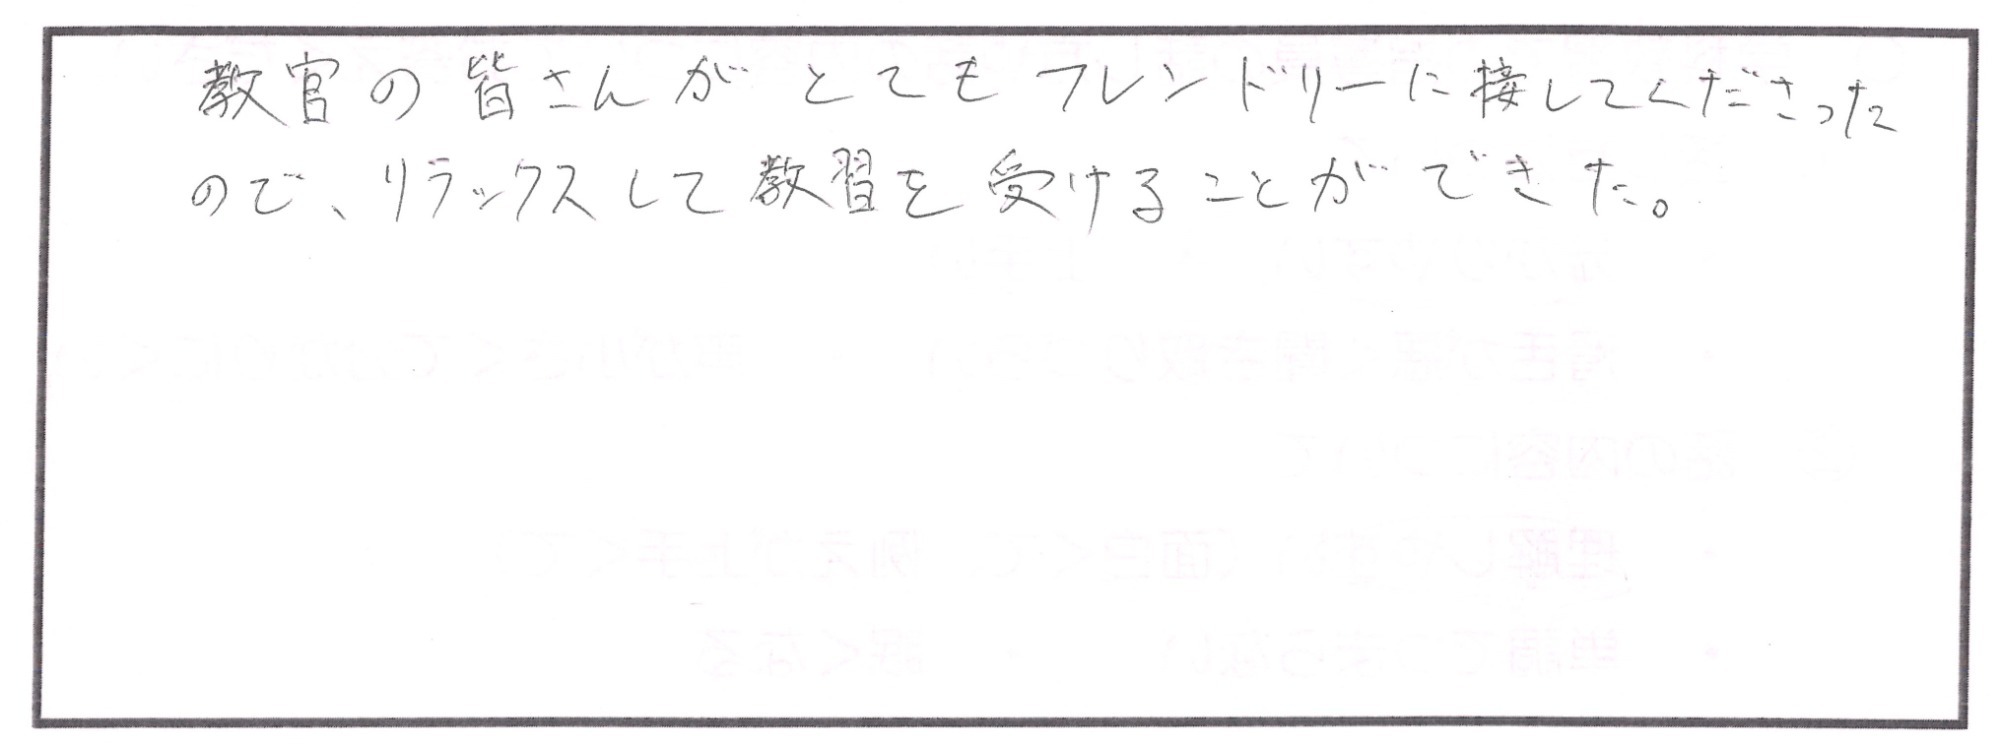 教官の皆さんがとてもフレンドリーに接してくださった
ので、リラックスして教習を受けることができた。